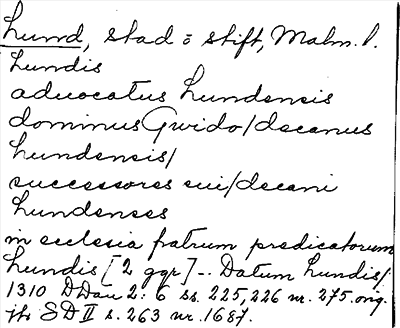 Lund, stad o stift, Malm. l.
Lundis
aduocatus Lundensis
dominus Gwido/decanus
Lundensis/
successores sui/decani
Lundenses
in ecclesia fratrum predicatorum
Lundis [2 ggr] -- Datum Lundis/
1310 DDan 2: 6 ss. 225, 226 nr. 275. orig.
jfr SD II s. 263 nr. 1687.